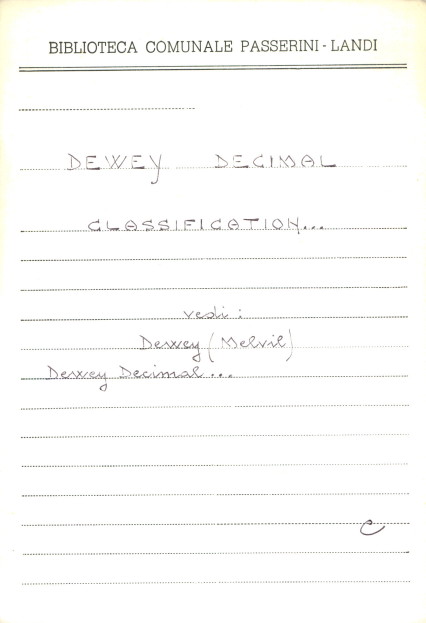 BIBLIOTECA COMUNALE PASSERINI - LANDI
DEWEY DECIMAL
CLASSIFICATION...
vedi:
Dewey (Melvil)
Dewey Decimal...
C